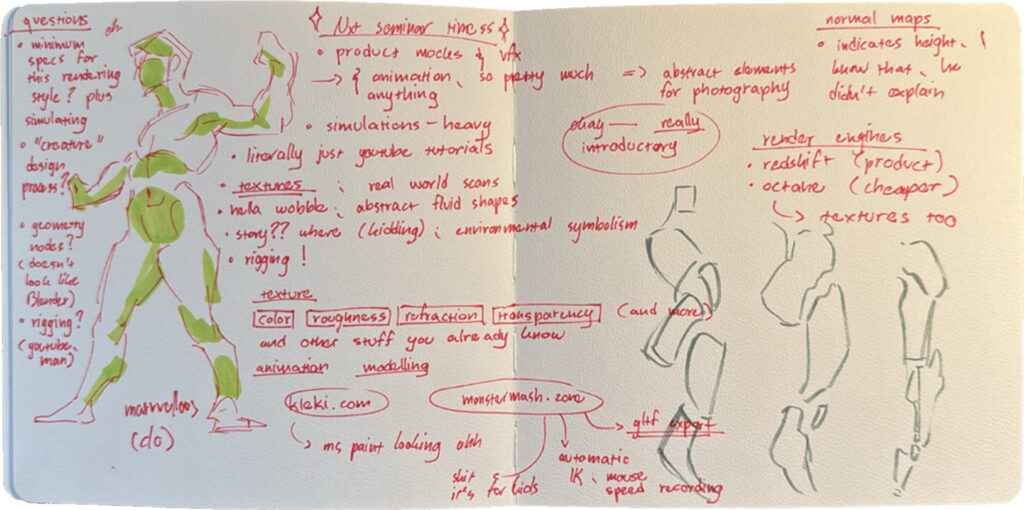 questions
• minimum
specs for
this rendering
style? plus
simulating
• "creature"
design
process?
• geometry
nodes?
(doesn't
look like
Blender)
• rigging?
(youtube,
man)
marvellous
(do)
Nxt seminar
• product mocks & vfx
→ & animation, so pretty much
anything
⇒ abstract elements
for photography
• simulations – heavy
• literally just youtube tutorials
• textures ; real world scans
• hella wobble ; abstract fluid shapes
• story?? where (kidding) ; environmental symbolism
• rigging!
texture
color roughness refraction transparency (and more)
and other stuff you already know
animation modelling
kleki.com
→ ms paint looking ahh
monstermash.zone
shit
it's for kids
automatic
IK, mouse
speed recording
gltf export
okay — really
introductory
normal maps
• indicates height, I
know that, he
didn't explain
render engines
• redshift (product)
• octane (cheaper)
→ textures too